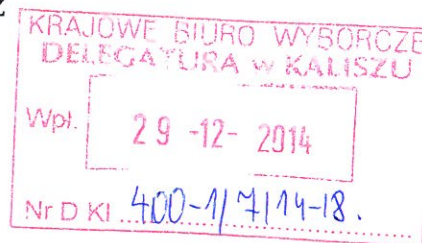 KRAJOWE BIURO WYBORCZE
DELEGATURA w KALISZU
Wpł. 29 -12- 2014
Nr D Kl ..... 400-1/7/14-18.